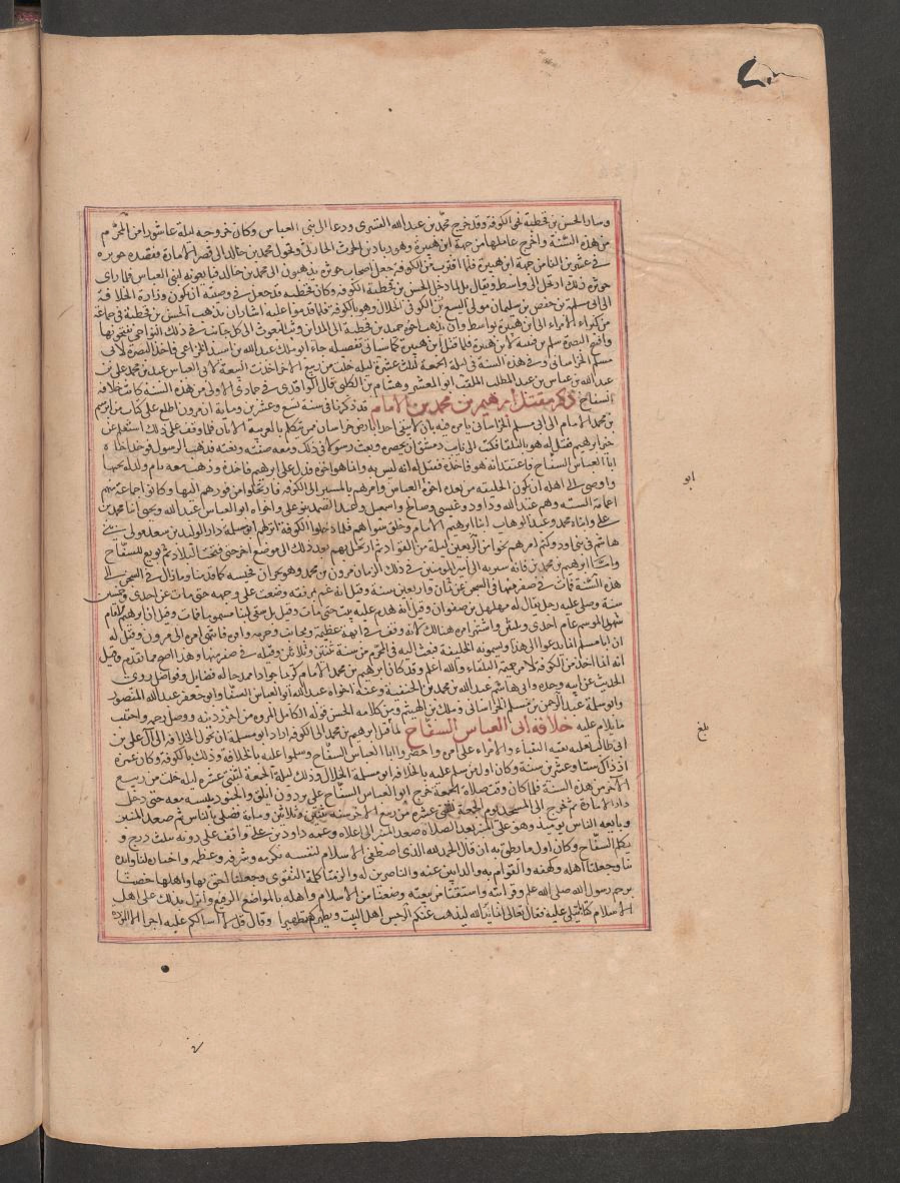 وسار الحسن بن قحطبة نحو الكوفة وقد خرج محمد بن عبد الله القشيري ودعا الى بني العباس وكان خروجه ليلة عاشورا من المحرم
من هذه السنة واخرج عاملها من جهة ابن هبيرة وهو زياد بن الحرث الحارثي وتحول محمد بن خالد الى قصر الامارة فقصده حوثرة
في عشرين الفا من جهة ابن هبيرة فلما اقترب من الكوفة جعل اصحاب حوثرة يذهبون الى محمد بن خالد فيبايعونه لبني العباس فلما راى
حوثرة ذلك ارتحل الى واسط ويقال بل لما دخل الحسن بن قحطبة الكوفة وكان قحطبة قد جعل في وصيته ان تكون وزارة الخلافة
الى ابي سلمة بن حفص بن سليمان مولى السبيع الكوفي الخلال وهو بالكوفة فلما قدموا عليه اشار ان يذهب الحسن بن قحطبة في جماعة
من كبراء الامراء الى ابن هبيرة بواسط وان يذهب اخوه حميد بن قحطبة الى المداين وبث البعوث الى كل جانب في ذلك النواحي يفتحونها
وافتتح البصرة سلم بن قتيبة لابن هبيرة فلما قتل ابن هبيرة كما سياتي تفصيله جاء ابو ملك عبد الله بن اسيد الخزاعي فاخذ البصرة لابي
مسلم الخراساني وفي هذه السنة في ليلة الجمعة لثلث عشرة ليلة خلت من ربيع الاخر اخذت البيعة لابي العباس عبد الله بن محمد بن علي بن
عبد الله بن عباس بن عبد المطلب الملقب ابو المعشر وهشام بن الكلبي وقال الواقدي في جمادى الاولى من هذه السنة كانت خلافة
السفاح ذكر مقتل ابرهيم بن محمد بن الامام قد ذكرنا في سنة تسع وعشرين وماية ان مرون اطلع على كتاب من ابرهيم
بن محمد الامام الى ابي مسلم الخراساني يامره فيه بان لا يبقي احدا بارض خراسان ممن تكلم بالعربية الا اباده فلما وقف على ذلك استعلم عن
خبر ابرهيم فقيل له هو بالبلقا فكتب الى نايب دمشق ان يحضره وبعث رسولا في ذلك ومعه صفته ونعته فذهب الرسول فوجد اخاه
ابا العباس السفاح فاعتقد انه هو فاخذه فقيل له انه ليس به وانما هو اخوه فدل على ابرهيم فاخذه وذهب معه بام ولد له يحبها
واوصى الى اهله ان يكون الخليفة من بعده اخوه ابو العباس وامرهم بالمسير الى الكوفة فارتحلوا من فورهم اليها وكانوا جماعة منهم
اعمامه الستة وهم عبد الله وداود وعيسى وصالح واسمعيل وعبد الصمد بنو علي واخواه ابو العباس عبد الله ويحيى ابنا محمد بن
علي وابناه محمد وعبد الوهاب ابنا ابرهيم الامام وخلق سواهم فلما دخلوا الكوفة انزلهم ابو سلمة دار الوليد بن سعد مولى بني
هاشم في بني اود وكتم امرهم نحوا من اربعين ليلة من القواد ثم ارتحل بهم بعد ذلك الى موضع اخر حتى فتحت البلاد ثم بويع للسفاح
واما ابرهيم بن محمد فانه سير به الى امير المومنين في ذلك الزمان مرون بن محمد وهو بحران فحبسه كما قدمنا وما زال في السجن الى
هذه السنة فمات في صفر منها في السجن عن ثمان واربعين سنة وقيل انه غم بمرفقة وضعت على وجهه حتى مات عن احدى وخمسين
سنة وصلى عليه رجل يقال له مهلهل بن صفوان وقيل انه هدم عليه بيت حتى مات وقيل بل سقي لبنا مسموما فمات وقيل ان ابرهيم الامام
شهد الموسم عام احدى وثلثين واشتهر امره هنالك لانه وقف في ابهة عظيمة ونجايب وحرمة وافرة فانتهى امره الى مرون وقيل له
ان ابا مسلم انما يدعو الى هذا ويسمونه الخليفة فبعث اليه في المحرم من سنة ثنتين وثلاثين وقتله في صفر منها وهذا اصح مما تقدم وقيل
انه انما اخذ من الكوفة لا من حميمة البلقاء والله اعلم وقد كان ابرهيم بن محمد الامام كريما جوادا ممدحا له فضايل وفواضل روى
الحديث عن ابيه وجده وابي هاشم عبد الله بن محمد بن الحنفية وعنه اخواه عبد الله ابو العباس السفاح وابو جعفر عبد الله المنصور
وابو سلمة عبد الرحمن بن مسلم الخراساني وملك بن الهيثم ومن كلامه الحسن قوله الكامل المروة من احرز دينه ووصل رحمه واجتنب
ما يلام عليه خلافة ابي العباس السفاح لما قتل ابرهيم بن محمد الى الكوفة اراد ابو سلمة ان يحول الخلافة الى ال علي بن
ابي طالب فغلبه بقية النقباء والامراء على امره واحضروا ابا العباس السفاح وسلموا عليه بالخلافة وذلك بالكوفة وكان عمره
اذ ذاك ستا وعشرين سنة وكان اول من سلم عليه بالخلافة ابو سلمة الخلال وذلك ليلة الجمعة لثنتي عشرة ليلة خلت من ربيع
الاخر من هذه السنة فلما كان وقت صلاة الجمعة خرج ابو العباس السفاح على برذون ابلق والجنود ملبسة معه حتى دخل
دار الامارة ثم خرج الى المسجد يوم الجمعة ثاني عشره من ربيع الاخر سنة ثنتين وثلاثين وماية فصلى بالناس ثم صعد المنبر
وبايعه الناس يوميذ وهو على المنبر بعد الصلاة صعد المنبر الى اعلاه وعمه داود بن علي واقف على دونه بثلث درج و
تكلم السفاح وكان اول ما نطق به ان قال الحمد لله الذي اصطفى الاسلام لنفسه فكرمه وشرفه وعظمه واختاره لنا وايده
بنا وجعلنا اهله وكهفه والقوام به والذابين عنه والناصرين له والزمنا كلمة التقوى وجعلنا احق بها واهلها خصنا
برحم رسول الله صلى الله عليه وقرابته واشتقنا من نبعته ووضعنا من الاسلام واهله بالمواضع الرفيع وانزل بذلك على اهل
الاسلام كتابا يتلى عليهم فقال تعالى انما يريد الله ليذهب عنكم الرجس اهل البيت ويطهركم تطهيرا وقال قل لا اسالكم عليه اجرا الا المودة
ابو
بلغ